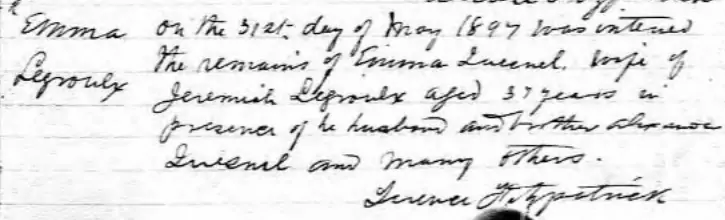 Emma on the 31st day of May 1897 was intered
Legroulx the remains of Emma Quesnel. wife of
Jeremiah Legroulx aged 37 years in
presence of he husband and brother
Quesnel and many others.
Terence Fitzpatrick